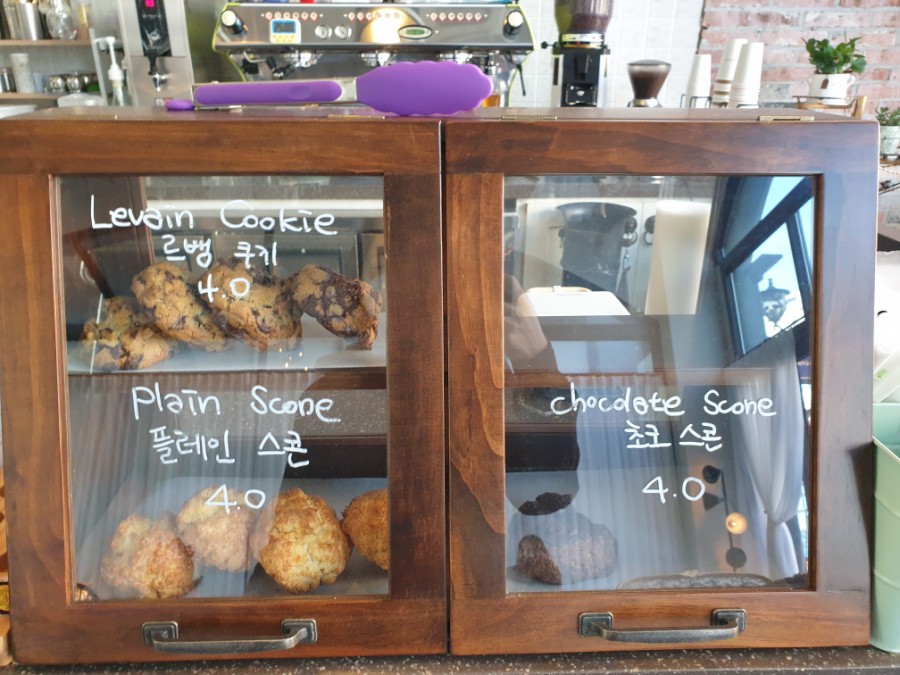 Levain Cookie
르뱅 쿠키
4.0
Plain Scone
플레인 스콘
4.0
chocolate Scone
초코 스콘
4.0